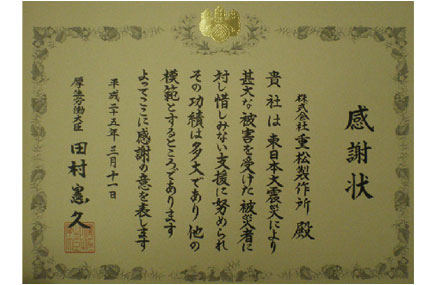 感謝状
株式会社重松製作所 殿
貴社は東日本大震災により
甚大な被害を受けた被災者に
対し惜しみない支援に努められ
その功績は多大であり他の
模範とするところであります
よってここに感謝の意を表します
平成二十五年三月十一日
厚生労働大臣 田村憲久